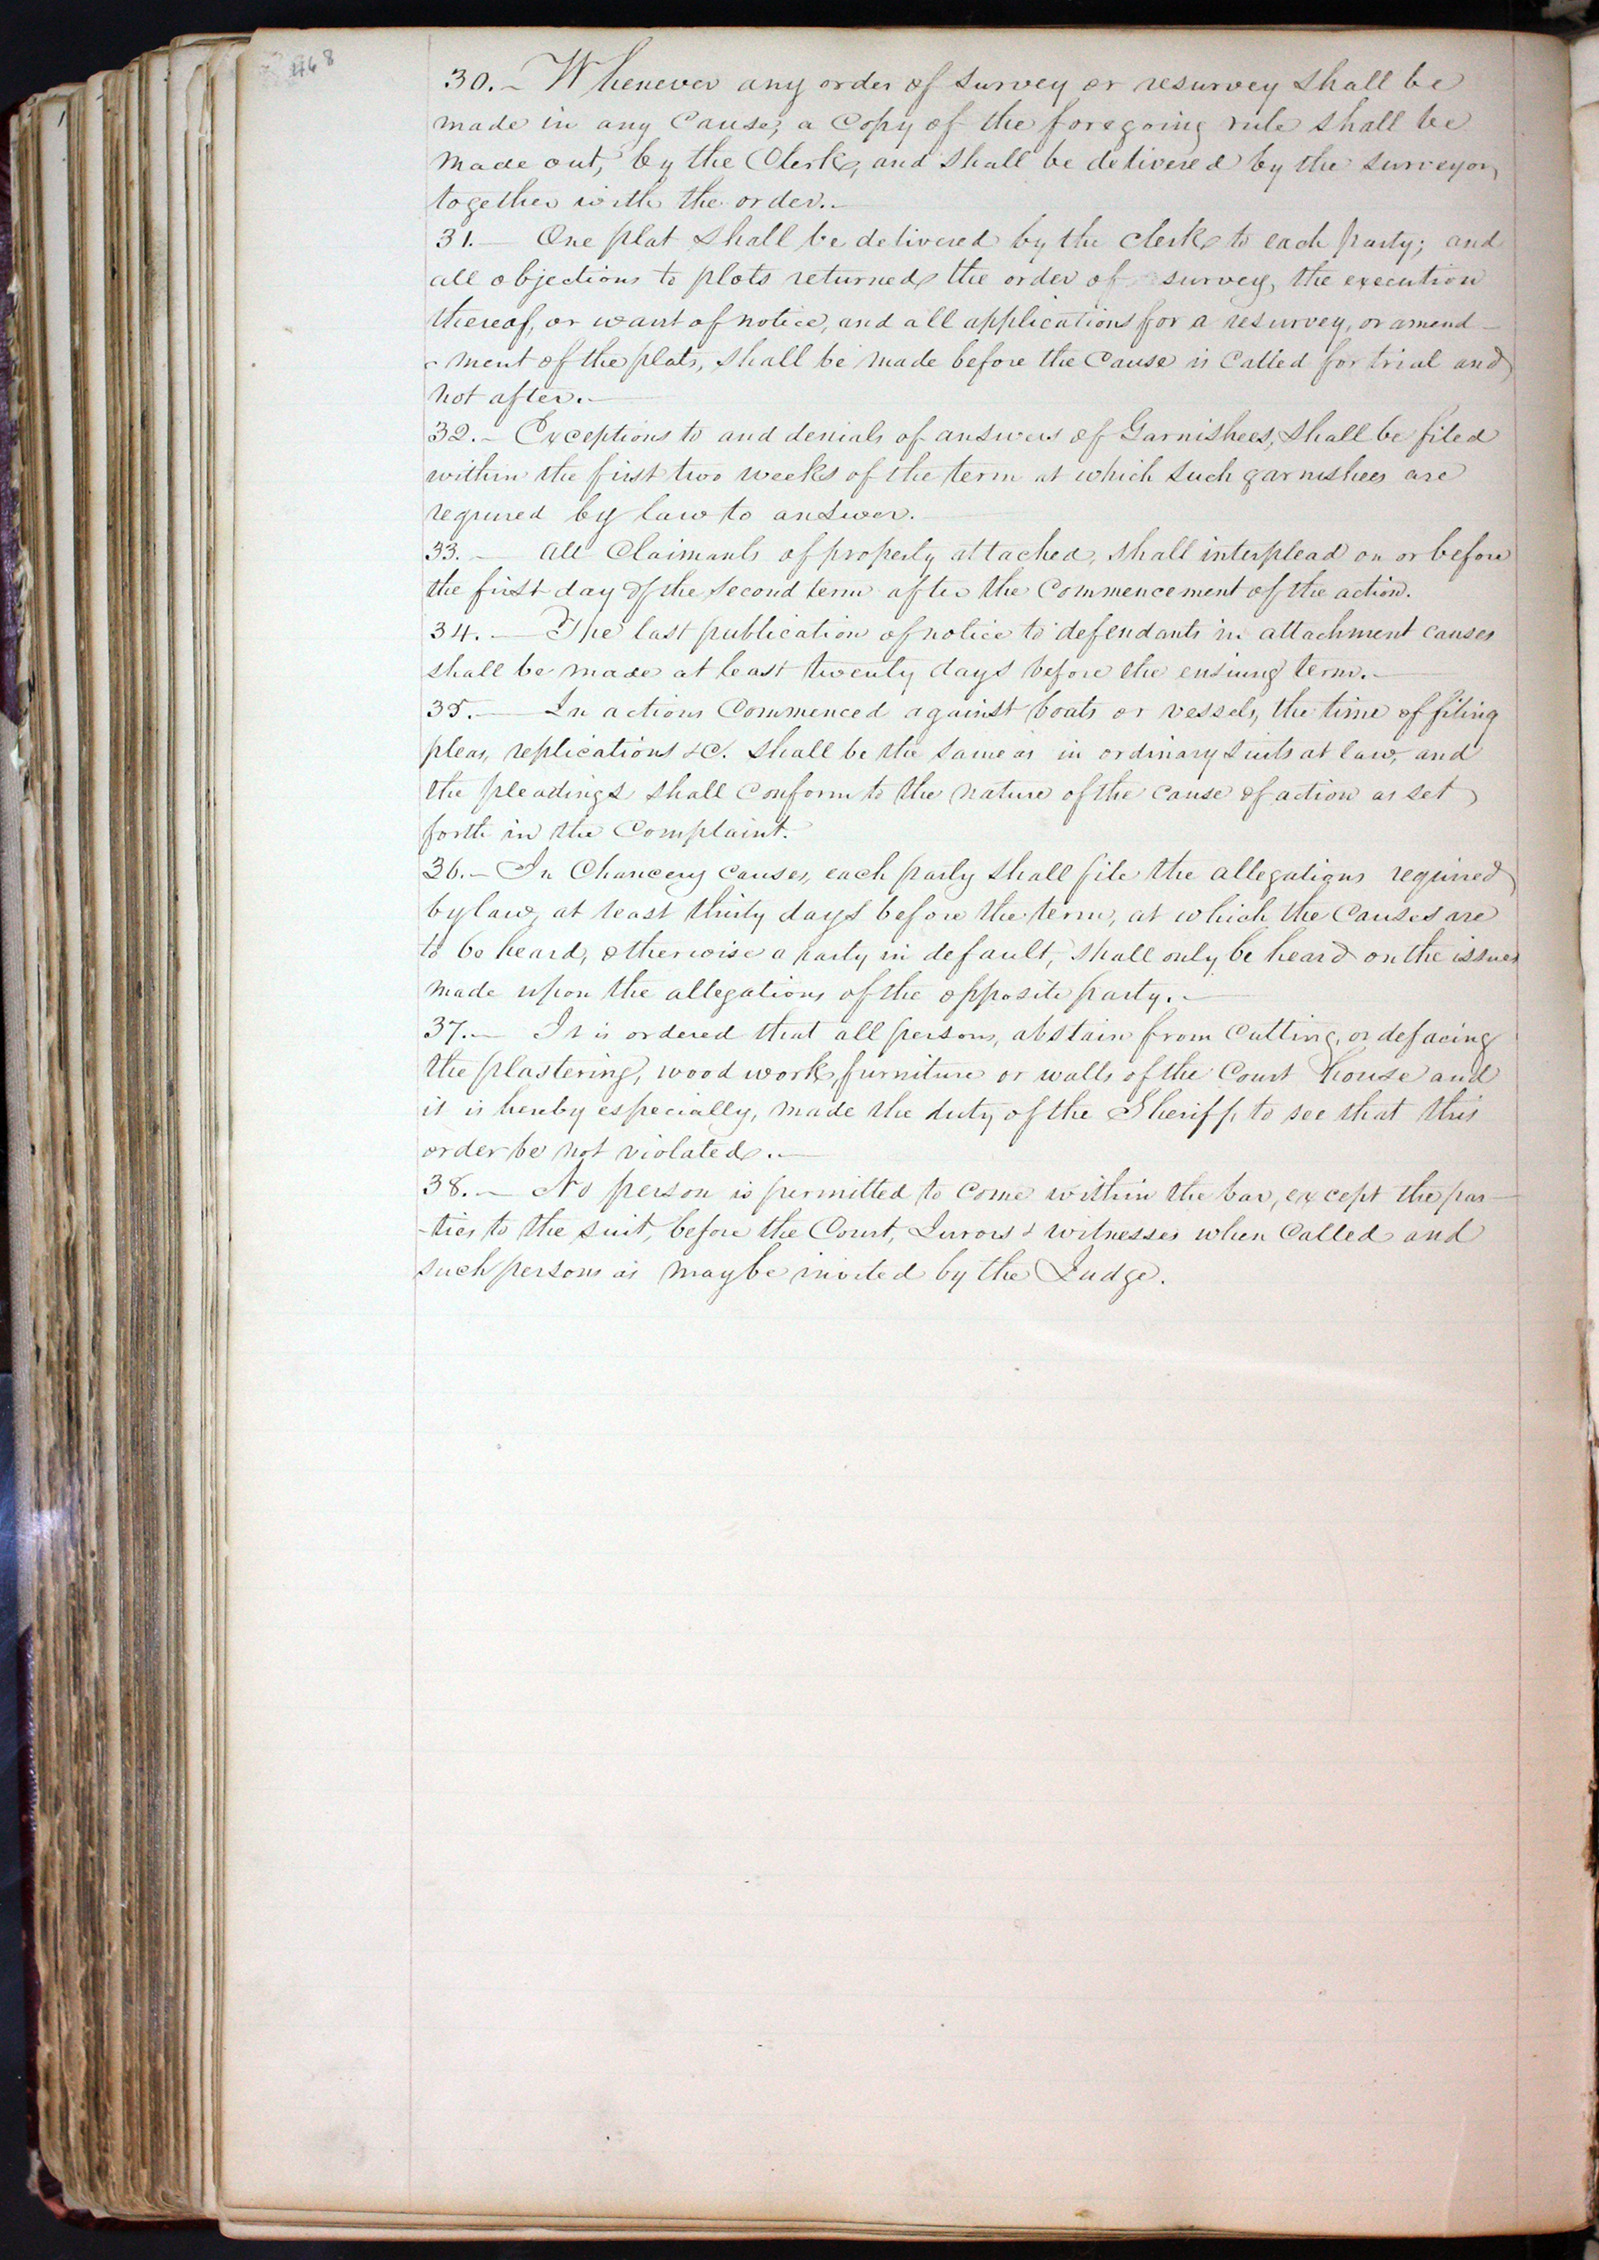 468
30. - Whenever any order of survey or resurvey shall be
made in any Cause, a Copy of the foregoing rule shall be
made out, by the Clerk, and shall be delivered by the surveyor,
together with the order. -
31. - One plat shall be delivered by the clerk to each party; and
all objections to plots returned, the order of survey, the execution
thereof, or want of notice, and all applications for a resurvey, or amend-
-ment of the plats, shall be made before the Cause is Called for trial and
not after. -
32. - Exceptions to and denials of answers of Garnishees, shall be filed
within the first two weeks of the term at which such garnishees are
required by law to answer. -
33. - All Claimants of property attached, shall interplead on or before
the first day of the second term after the Commencement of the action.
34. - The last publication of notice to defendants in attachment causes
shall be made at least twenty days before the ensiung term. -
35. - In actions Commenced against boats or vessels, the time of filing
pleas, replications &C. shall be the same as in ordinary suits at law, and
the pleadings shall Conform to the nature of the cause of action as set
forth in the Complaint.
36. - In Chancery Causes, each party shall file the allegations required
by law, at least thirty days before the term, at which the Causes are
to be heard, otherwise a party in default, shall only be heard on the issues
made upon the allegations of the opposite party. -
37. - It is ordered that all persons, abstain from Cutting, or defacing
the plastering, wood work, furniture or walls of the Court house and
it is hereby especially, made the duty of the Sheriff, to see that this
order be not violated. -
38. - No person is permitted to Come within the bar, except the par-
-ties to the suit, before the Court, Jurors & witnesses when Called and
such persons as may be invited by the Judge.